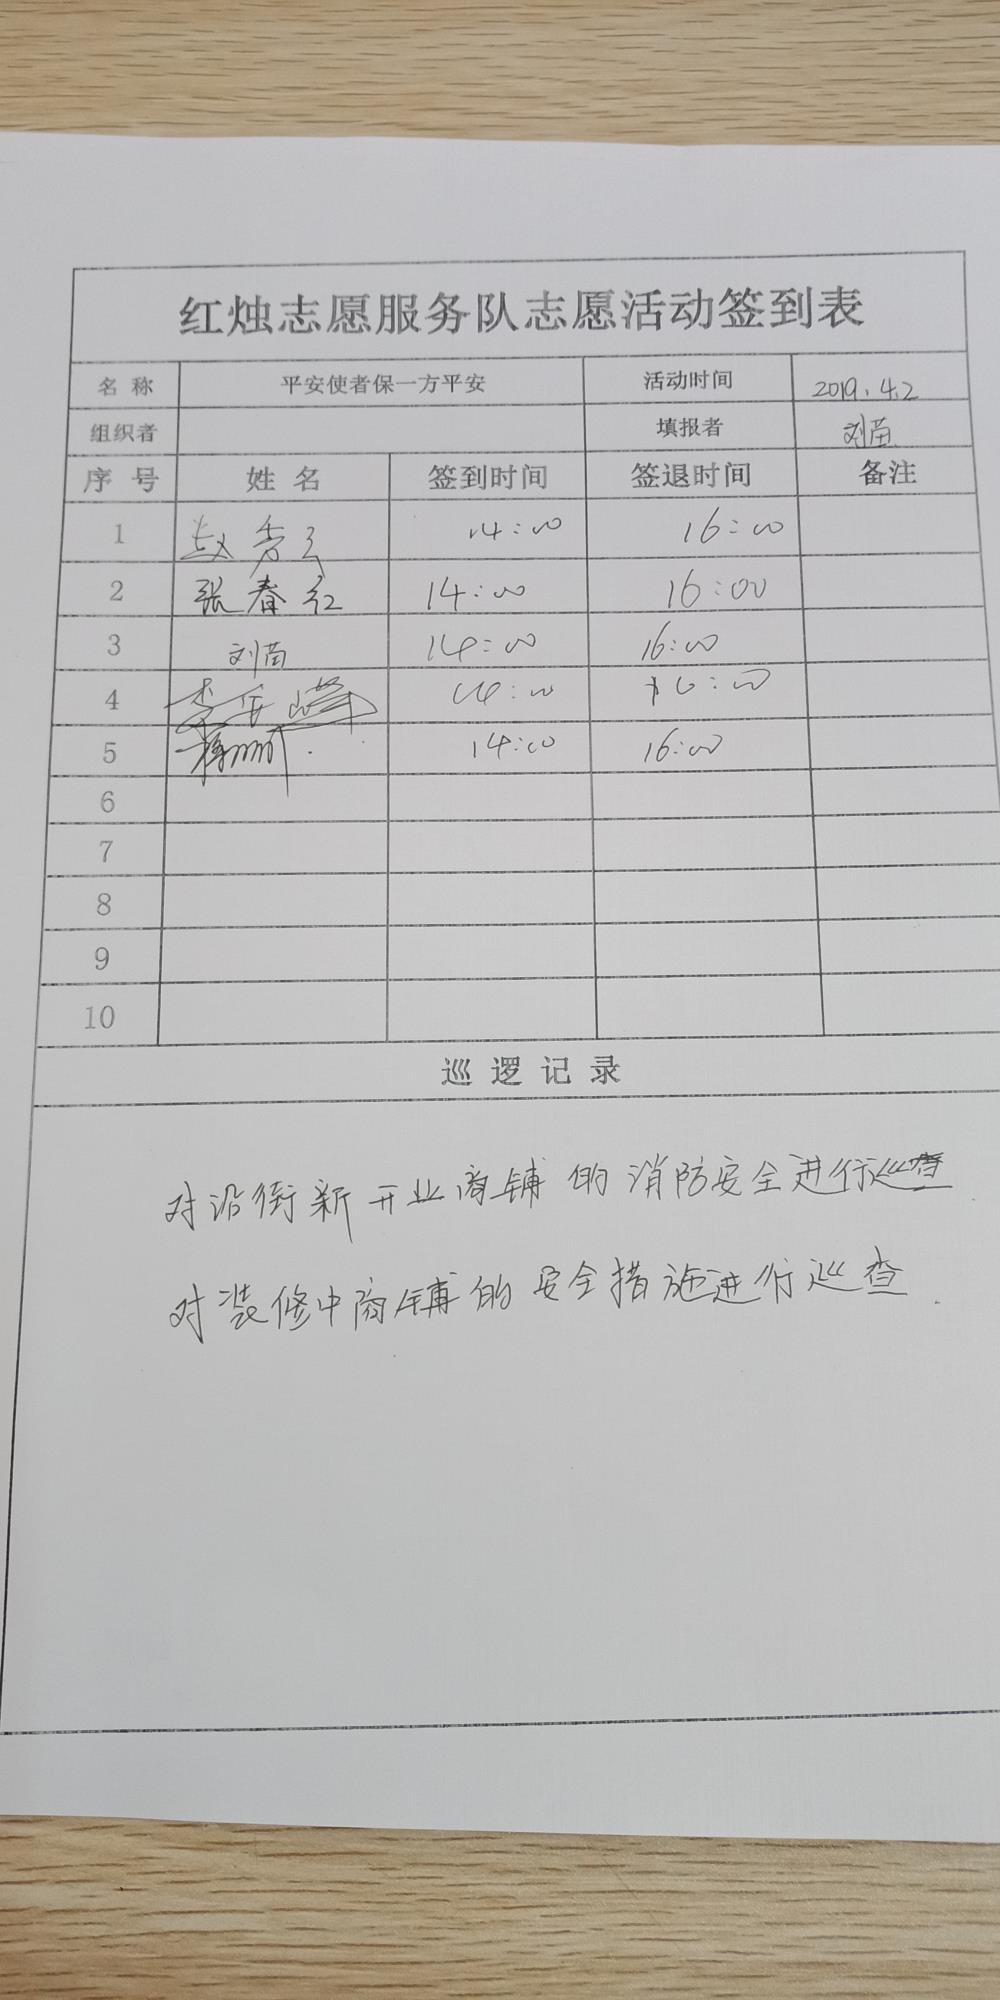 红烛志愿服务队志愿活动签到表
名 称 平安使者保一方平安 活动时间 2019.4.2
组织者 填报者 刘苗
序 号 姓 名 签到时间 签退时间 备注
1 赵秀 14:00 16:00
2 张春红 14:00 16:00
3 刘苗 14:00 16:00
4 李 峰 14:00 16:00
5 14:00 16:00
6
7
8
9
10
巡 逻 记 录
对沿街新开业商铺的消防安全进行巡查
对装修中商铺的安全措施进行巡查.